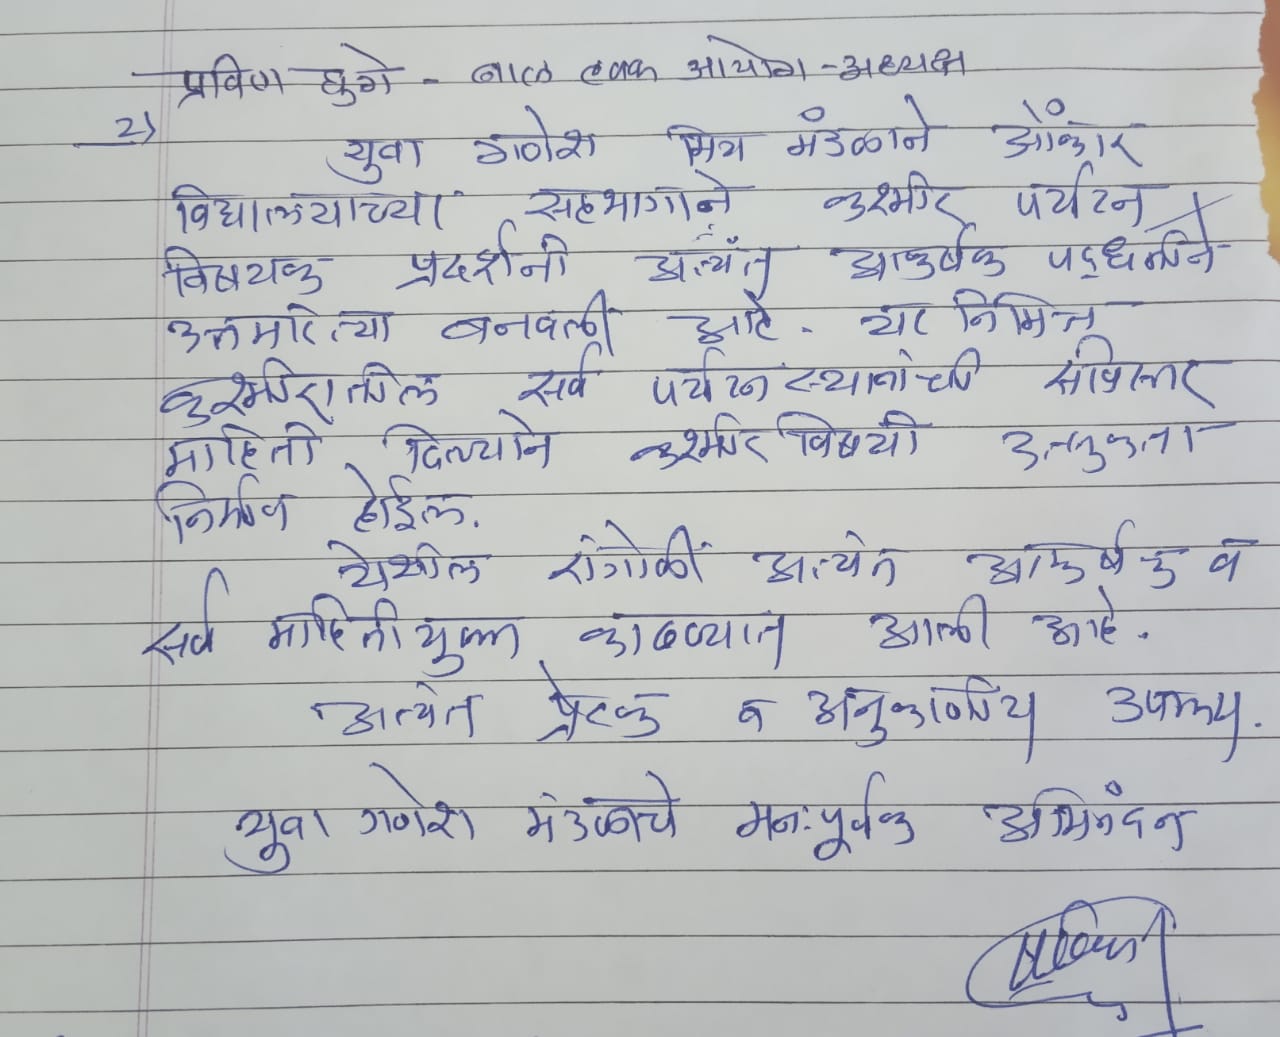 प्रविण घुगे - बाल हक्क आयोग - अध्यक्ष
2)
युवा गणेश मित्र मंडळाने ओंकार
विद्यालयाच्या सहभागाने कश्मीर पर्यटन
विषयक प्रदर्शनी अत्यंत आकर्षक पद्धतीने
उत्तमरित्या बनवली आहे. या निमित्त
कश्मीरातील सर्व पर्यटन स्थानांची सविस्तर
माहिती दिल्याने कश्मीर विषयी उत्सुकता
निर्माण होईल.
येथील रांगोळी अत्यंत आकर्षक व
सर्व माहिती युक्त काढण्यात आली आहे.
अत्यंत प्रेरक व अनुकरणीय उपक्रम.
युवा गणेश मंडळाचे मनःपूर्वक अभिनंदन